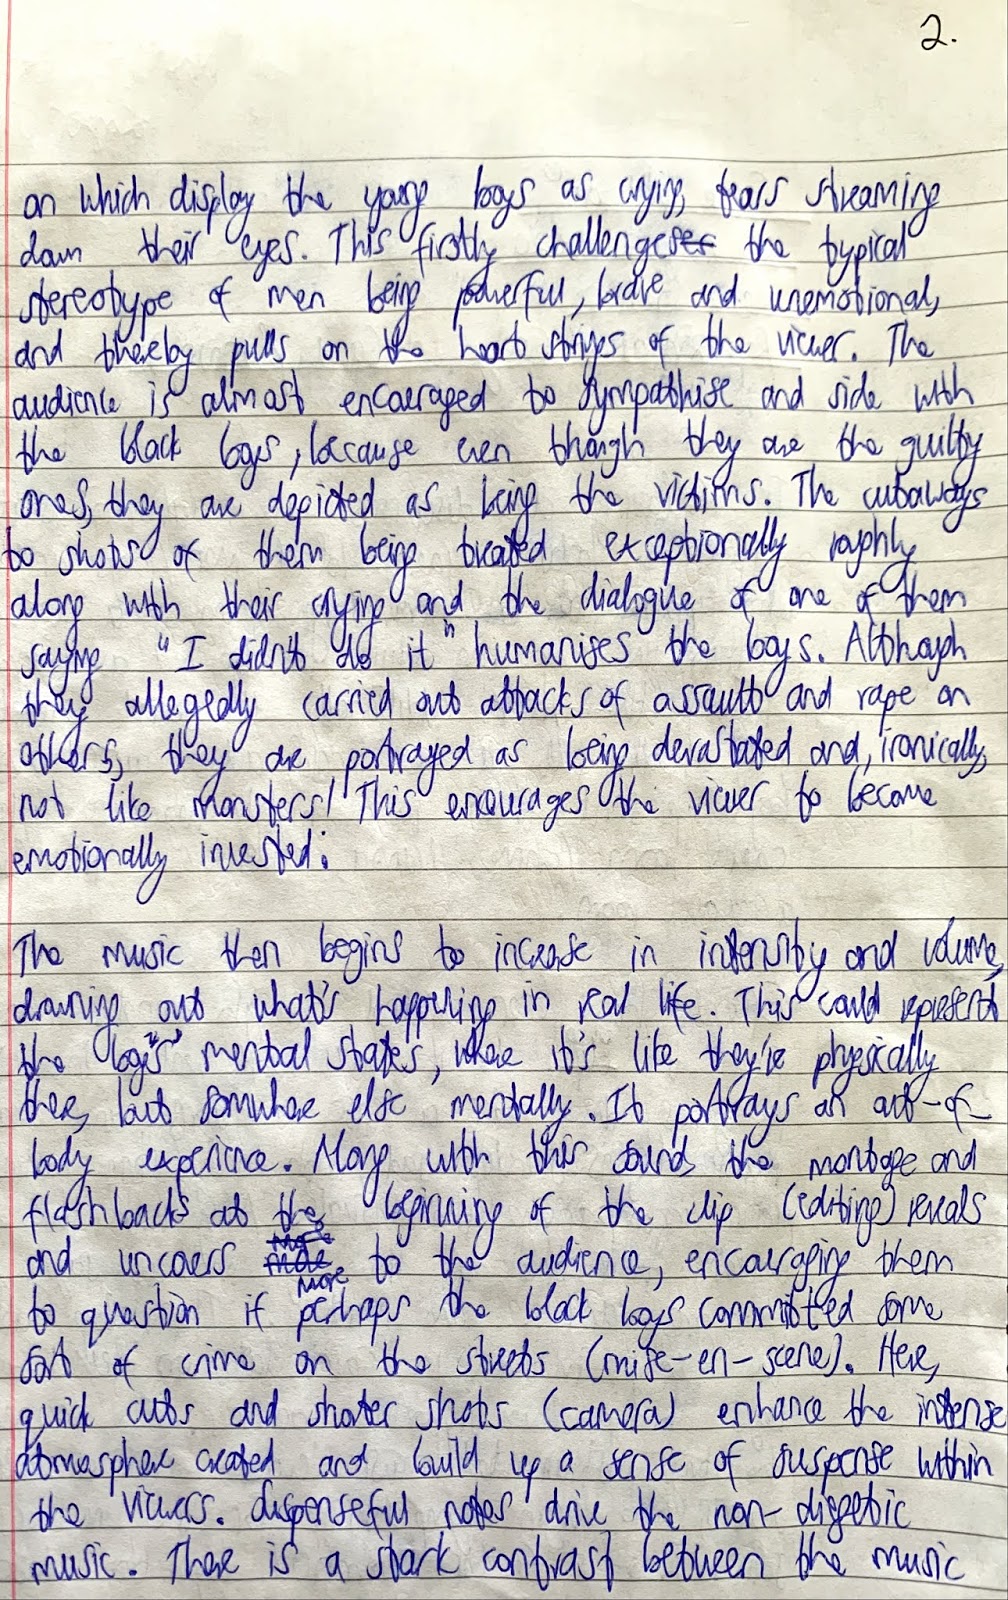 2.
on which display the young boys as crying, tears streaming
down their eyes. This firstly challenges the typical
stereotype of men being powerful, brave and unemotional,
and thereby pulls on the heart strings of the viewer. The
audience is almost encouraged to sympathise and side with
the black boys, because even though they are the guilty
ones, they are depicted as being the victims. The cutaways
to shots of them being treated exceptionally roughly
along with their crying and the dialogue of one of them
saying "I didn't do it" humanises the boys. Although
they allegedly carried out attacks of assault and rape on
others, they are portrayed as being devastated and, ironically,
not like monsters! This encourages the viewer to become
emotionally invested.
The music then begins to increase in intensity and volume,
drowning out what's happening in real life. This could represent
the boys' mental states, where it's like they're physically
there, but somwhere else mentally. It portrays an out-of-
body experience. Along with this sound, the montage and
flashbacks at the beginning of the clip (editing) reveals
and uncovers more to the audience, encouraging them
to question if perhaps the black boys committed some
sort of crime on the streets (mise-en-scene). Here,
quick cuts and shorter shots (camera) enhance the intense
atmosphere created and build up a sense of suspense within
the viewers. Suspenseful notes drive the non-diegetic
music. There is a stark contrast between the music